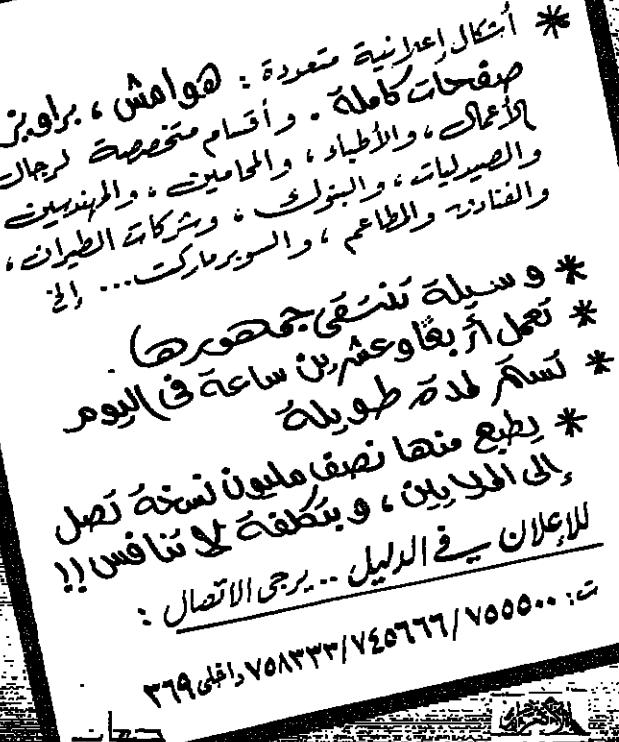 * أشكال إعلانية متعددة : هوامش ، براويز
صفحات كاملة . وأقسام متخصصة لرجال
الأعمال ، والأطباء ، والمحامين ، والمهندسين
والصيدليات ، والبنوك ، وشركات الطيران ،
والفنادق والمطاعم ، والسوبرماركت ... إلخ
* وسيلة تنتقى جمهورها .
* تعمل أربعًا وعشرين ساعة فى اليوم
* تستمر لمدة طويلة
* يطبع منها نصف مليون نسخة تصل
إلى الملايين ، وبتكلفة لا تنافس !!
للإعلان في الدليل .. يرجى الاتصال :
ت : ٧٥٥٥٠٠ / ٧٤٥٦٦٦ / ٧٥٨٣٣٣ داخلى ٣٦٩